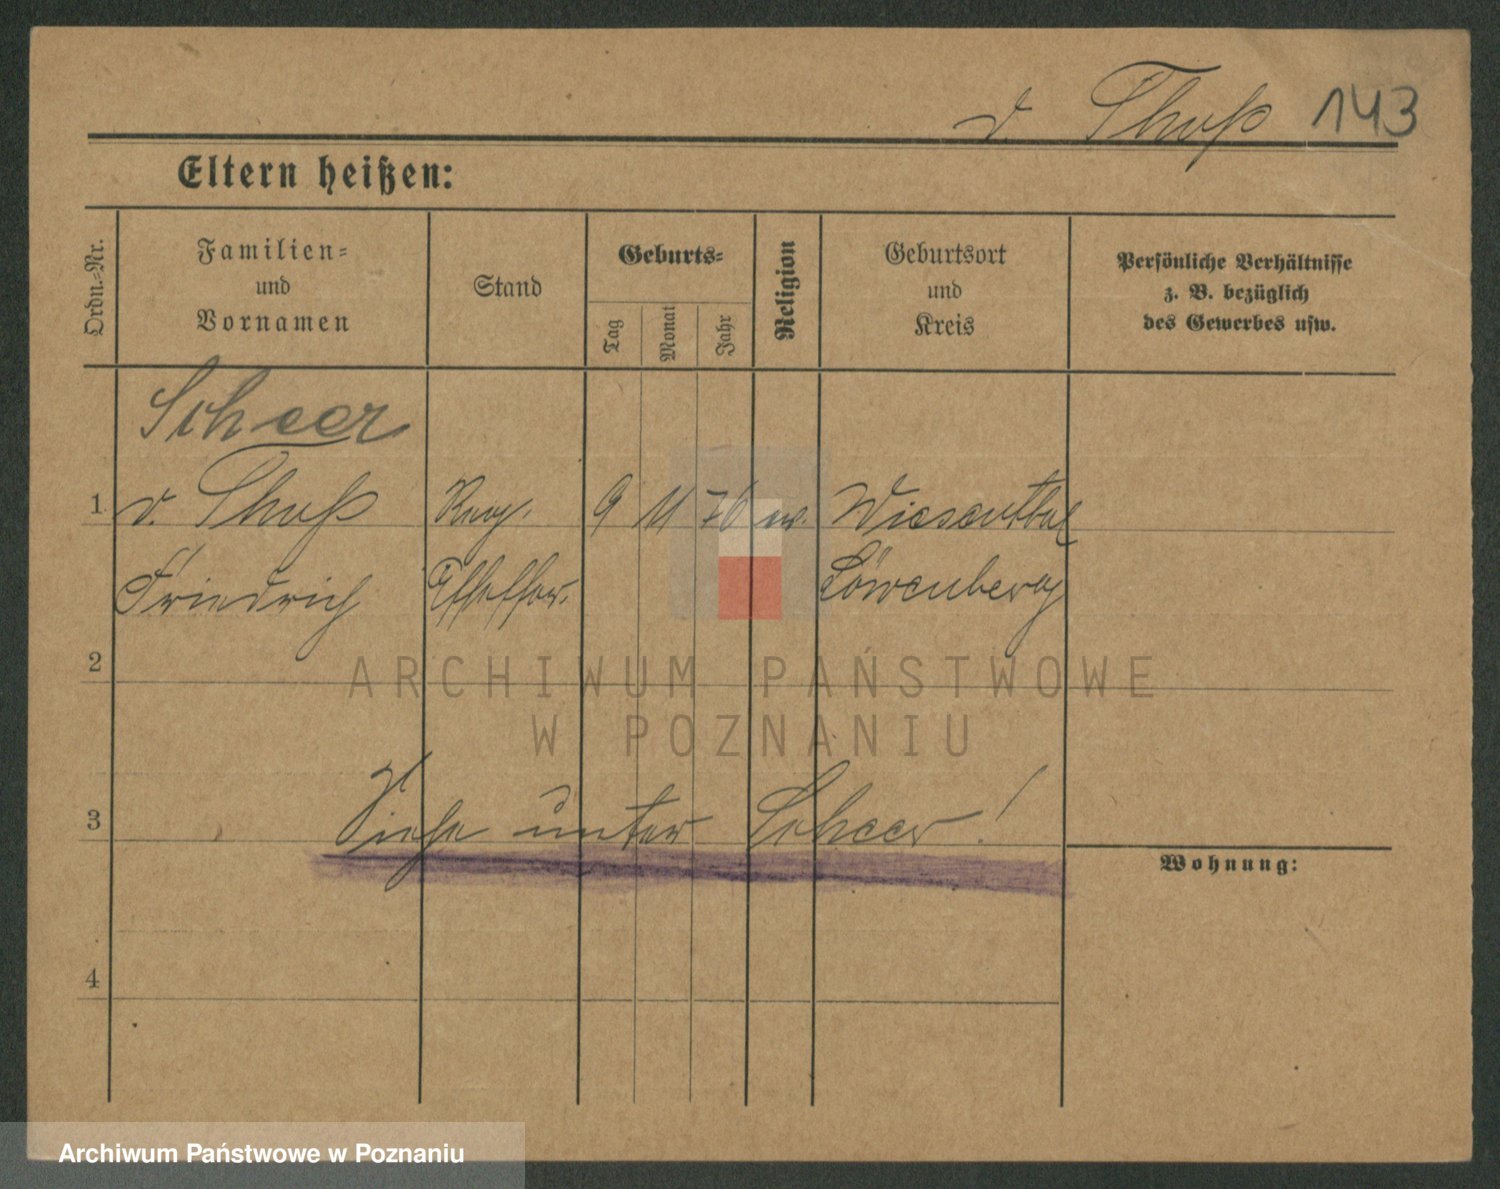 v. Thoß 143
Eltern heißen:
Ordn.-Nr.
Familien=
und
Vornamen
Stand
Geburts=
Tag
Monat
Jahr
Religion
Geburtsort
und
Kreis
Persönliche Verhältnisse
z. B. bezüglich
des Gewerbes usw.
Scheer
1 v. Thoß Reg. 9 11 70 ev. Wiesenthal
Friedrich Löwenberg
2
ARCHIWUM PAŃSTWOWE
W POZNANIU
3 Siehe unter Scheer!
Wohnung:
4
Archiwum Państwowe w Poznaniu